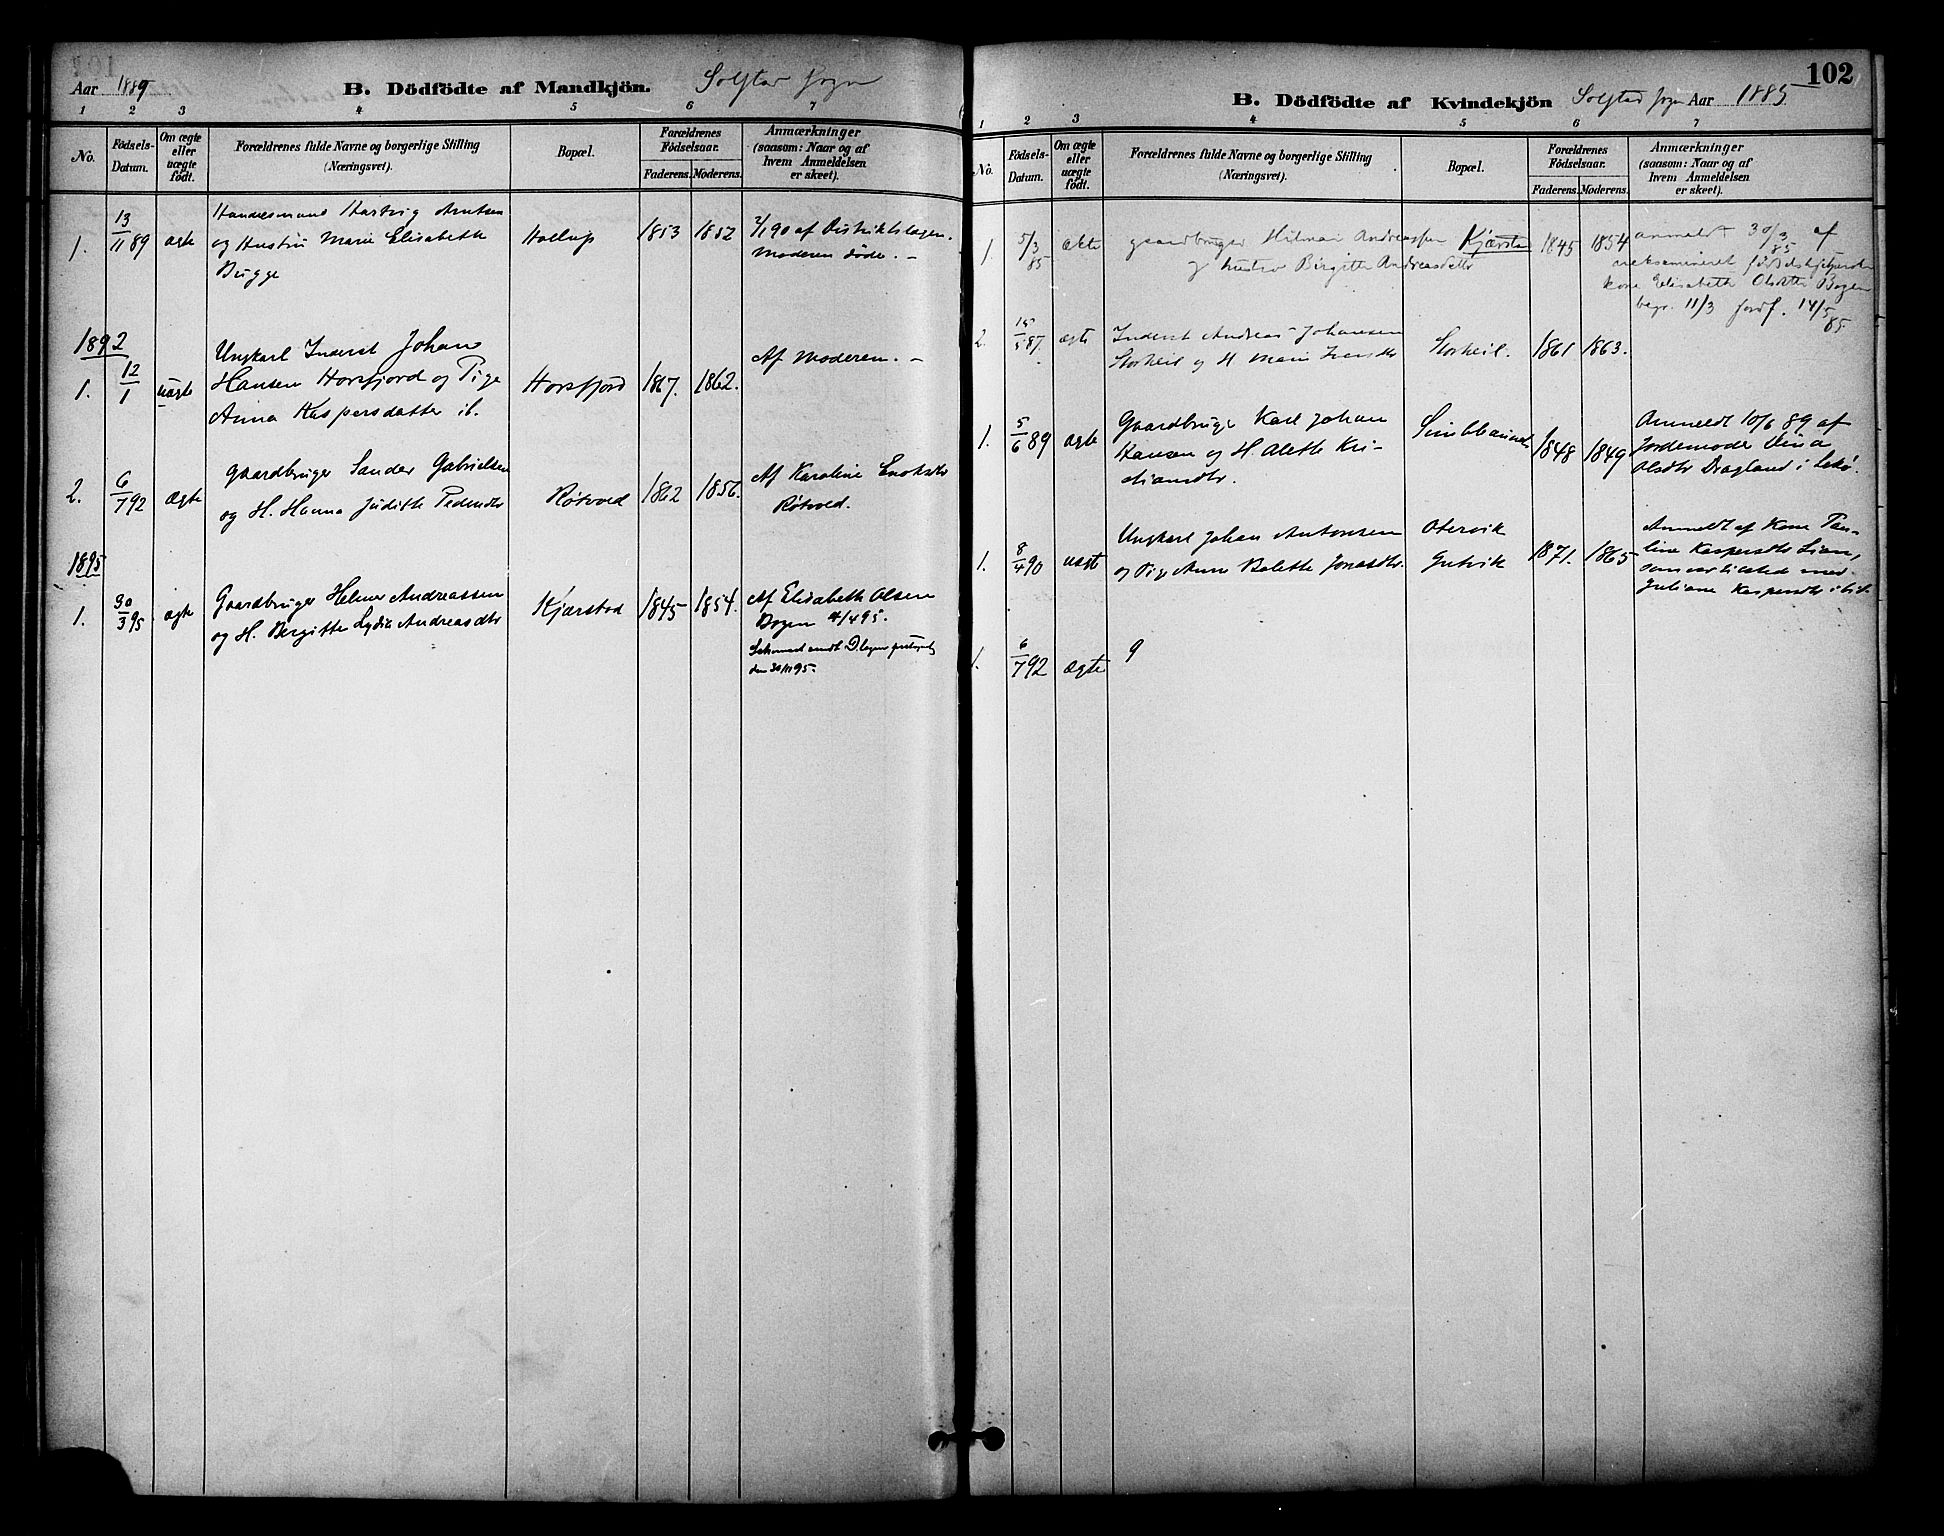 Aar 1889. B. Dödfödte af Mandkjön. Solstad Sogn
1 2 3 4 5 6 7
No. Födsels-Datum. Om ægte eller uægte födt. Forældrenes fulde Navne og borgerlige Stilling (Næringsvei). Bopæl. Forældrenes Födselsaar. Faderens. Moderens. Anmærkninger (saasom: Naar og af hvem Anmeldelsen er skeet).
Handesmand Hartvig Arntsen
1. 13/11 89 ægte og Hustru Marie Elisabeth Hollup 1853 1852 2/1 90 af Distriktslægen.
Bugge Moderen døde. —
1892
Ungkarl Inderst Johan Af Moderen. —
1. 12/1 uægte Hansen Horsfjord og Pige Horsfjord 1867. 1862.
Anna Kaspersdatter ib.
2. 6/7 92 ægte Gaardbruger Sander Gabrielsen Røtvold 1862 1856. Af Karoline Enoksdtr
og H. Hanna Judith Pedersdtr Røtvold.
1895
1. 30/3 95 ægte Gaardbruger Helmer Andreassen Kjærstad 1845 1854. Af Elisabeth Olsen
og H. Bergitte Lydia Andreasdtr Bogen 4/4 95.
den 30/11 95.
102
B. Dödfödte af Kvindekjön Solstad Sogn Aar 1885
1 2 3 4 5 6 7
No. Födsels-Datum. Om ægte eller uægte födt. Forældrenes fulde Navne og borgerlige Stilling (Næringsvei). Bopæl. Forældrenes Födselsaar. Faderens. Moderens. Anmærkninger (saasom: Naar og af hvem Anmeldelsen er skeet).
1. 5/3 85 ækte gaardbruger Hilmar Andreassen Kjærstad 1845 1854 anmeldt 30/3 85 af
og hustro Birgitte Andreasdattr uexamineret
kone Elisabeth Olsdttr Bogen
begr. 11/3 jordf. 14/5 85
2. 15/5 87. ægte Inderst Andreas Johansen Storheil. 1861 1863.
Storheil og H Marie
1. 5/6 89 ægte Gaardbruger Karl Johan 1848 1849 Anmeldt 10/6 89 af
Hansen og H. Alette Kri- Jordemoder Dina
stiansdtr. Olsdtr Dragland i Lekø.
1. 8/4 90 uægte Ungkarl Johan Antonsen Otervik 1871. 1865 Anmeldt af Kone Pau-
og Pige Anne Bolette Jonasdtr. Gutvik line Kaspersdtr Lian,
som var tilstede med
Juliane Kaspersdtr ibid.
1. 6/7 92 ægte 9